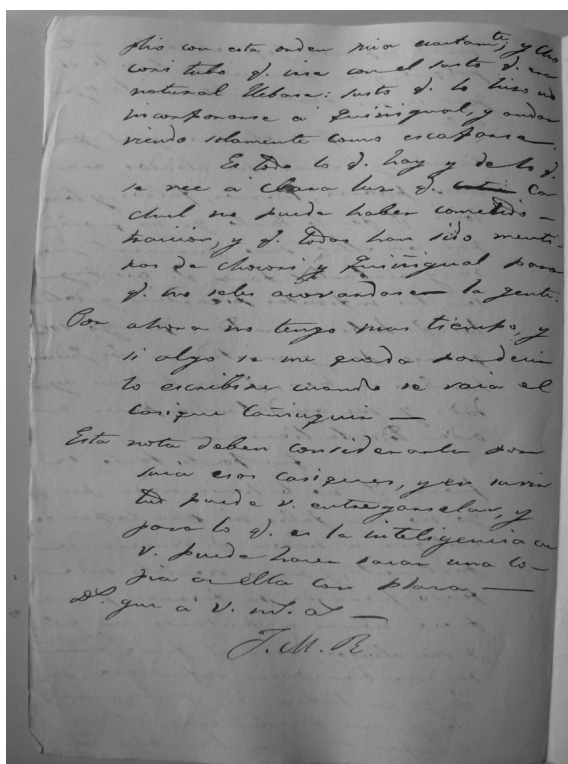 plio con esta orden mia exactamte, y Cho
cori tubo q. irse con el susto q. era
natural llebase: susto q. lo hizo no
incorporarse a Quiñigual, y andar
viendo solamente como escaparse.
Es todo lo q. hay y de lo q.
se vee a clara luz q. Ca
chul no puede haber cometido
traicion, y q. todas han sido menti-
ras de Chocori, y Quiñigual para
q. no seles acovardase la gente.
Por ahora no tengo mas tiempo, y
si algo se me queda por decir
lo escribiré cuando se vaia el
casique Cañiuquir —
Esta nota deben considerarla por
suia esos casiques, y en
puede v. entregarselas, y
para lo q. es la inteligencia de
v. puede hacer sacar una co-
pia de ella con Plaza. —
Ds. gue a V. ms. as —
J. M. R.